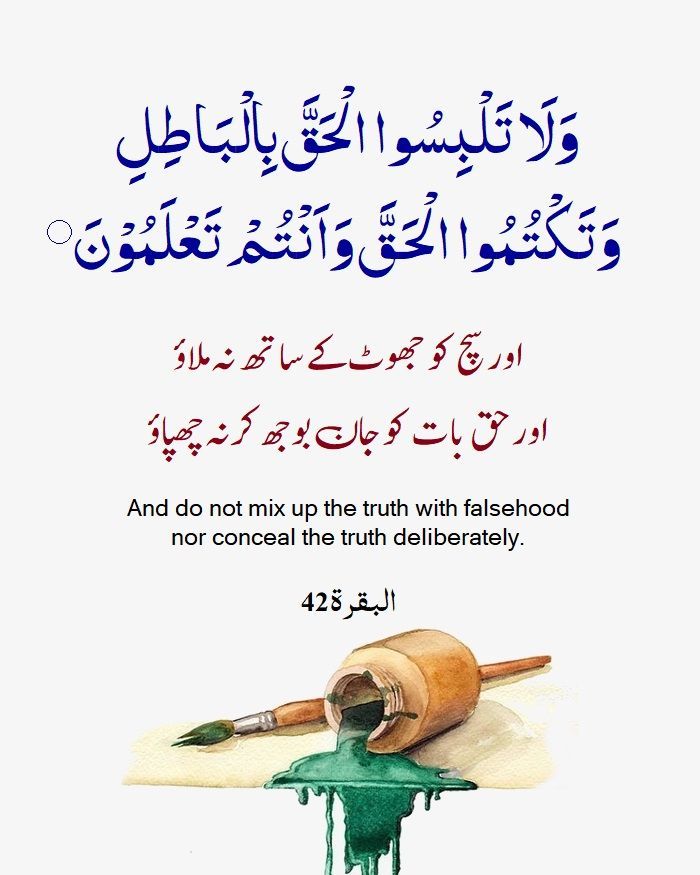 وَلَا تَلْبِسُوا الْحَقَّ بِالْبَاطِلِ
وَتَكْتُمُوا الْحَقَّ وَاَنْتُمْ تَعْلَمُوْنَ
اور سچ کو جھوٹ کے ساتھ نہ ملاؤ
اور حق بات کو جان بوجھ کر نہ چھپاؤ
And do not mix up the truth with falsehood
nor conceal the truth deliberately.
البقرة42